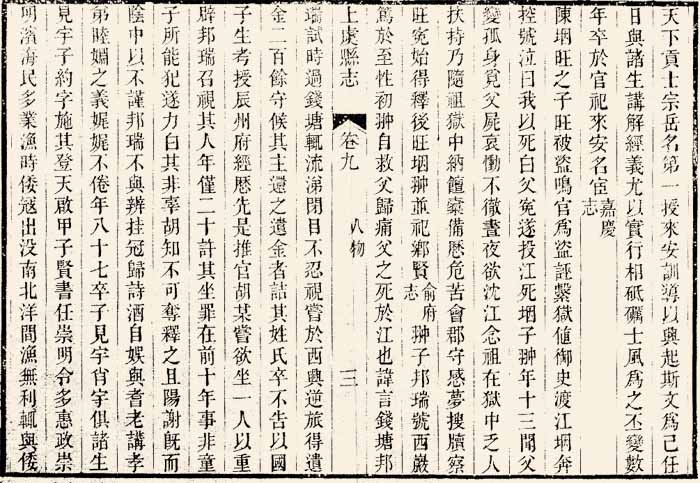 天下貢士宗岳名第一授來安訓導以興起斯文爲己任
日與諸生講解經義尤以實行相砥礪士風爲之丕變數
年卒於官祀來安名宦嘉慶志
陳堈旺之子旺被盜鳴官爲盜誣繫獄値御史渡江堈奔
控號泣曰我以死白父寃遂投江死堈子翀年十三聞父
變孤身覓父屍哀慟不徹晝夜欲沈江念祖在獄中乏人
扶持乃隨祖獄中納饘橐備歷危苦會郡守感夢搜牘察
旺寃始得釋後旺堈翀並祀鄉賢俞府志翀子邦瑞號西巖
篤於至性初翀自救父歸痛父之死於江也諱言錢塘邦
上虞縣志
卷九
人物
三
瑞試時過錢塘輒流涕閉目不忍視嘗於西興逆旅得遺
金二百餘守候其主還之遺金者詰其姓氏卒不告以國
子生考授辰州府經歷先是推官胡某嘗欲坐一人以重
辟邦瑞召視其人年僅二十許其坐罪在前十年事非童
子所能犯遂力白其非辜胡知不可奪釋之且陽謝旣而
陰中以不謹邦瑞不與辨挂冠歸詩酒自娛與耆老講孝
弟睦婣之義娓娓不倦年八十七卒子見宇肖宇俱諸生
見宇子約字施其登天啟甲子賢書任崇明令多惠政崇
明濱海民多業漁時倭寇出没南北洋間漁無利輒與倭